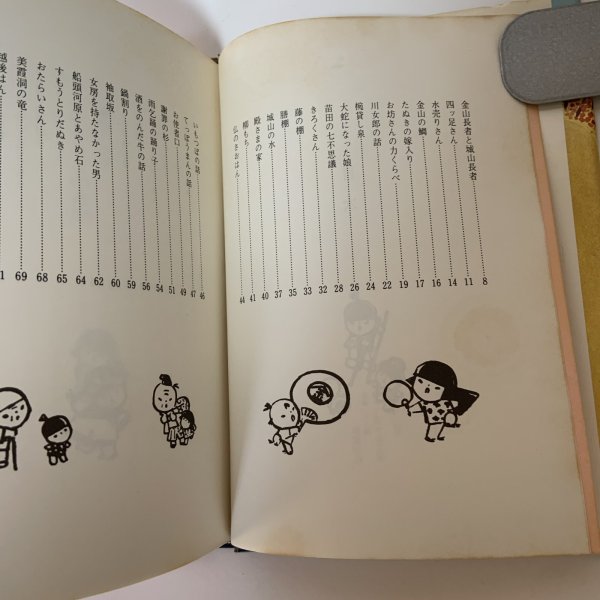 金山長者と城山長者 8
四ッ足さん 11
水売りさん 14
金山の鯛 16
たぬきの嫁入り 17
お坊さんの力くらべ 19
川女郎の話 22
椀貸し泉 24
大蛇になった娘 26
苗田の七不思議 28
きろくさん 32
藤の棚 33
勝棚 35
城山の水 37
殿さまの家 40
柳もち 41
仏のさおはん 44
いもつぼの話 46
てっぽうまんの話 47
お使者口 49
謝罪の杉 51
雨乞踊の踊り子 54
酒をのんだ牛の話 56
鍋割り 59
袖取坂 60
女房を持たなかった男 62
船頭河原とあやめ石 64
すもうとりだぬき 65
おたらいさん 68
美霞洞の竜 69
越後はん